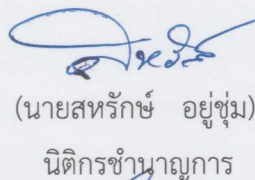 (นายสหรักษ์ อยู่ชุ่ม)
นิติกรชำนาญการ